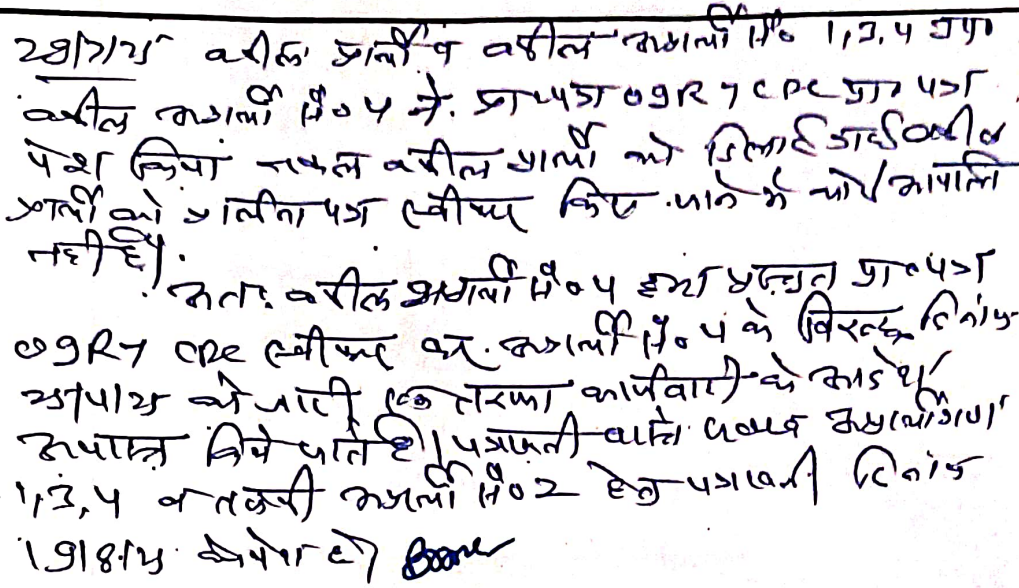 28/7/25 वकील प्रार्थी व वकील अप्रार्थी सं० 1,3,4 उप०
वकील अप्रार्थी सं० 4 ने प्रा०पत्र O9R7 CPC प्रा० पत्र
पेश किया नकल वकील प्रार्थी को दिलाई गई वकील
प्रार्थी को प्रार्थना पत्र स्वीकार किए जाने में कोई आपत्ति
नहीं है।
अतः वकील अप्रार्थी सं० 4 द्वारा प्रस्तुत प्रा०पत्र
O9R7 CPC स्वीकार कर अप्रार्थी सं० 4 के विरूद्ध दिनांक
को जारी एक तरफा कार्यवाही के आदेश
अपास्त किये जाते है। पत्रावली वास्ते जवाब अप्रार्थीगण
1,3,4 व तलबी अप्रार्थी सं० 2 हेतु पत्रावली दिनांक
19/8/25 को पेश हो